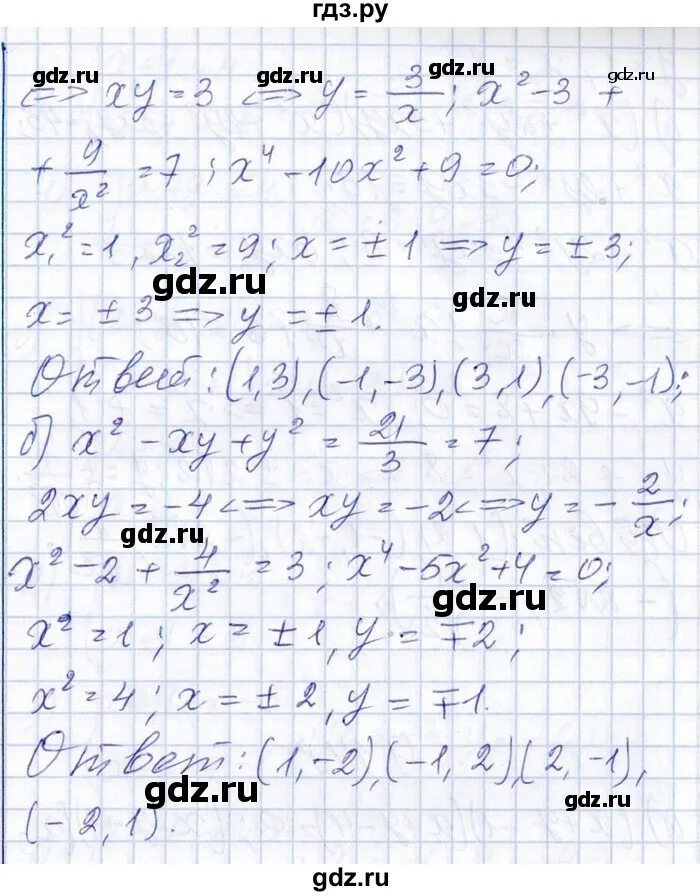 гдз.ру
gdz.ru gdz.ru gdz.ru
<=> xy = 3 <=> y = 3/x; x² - 3 +
+ 9/x² = 7; x⁴ - 10x² + 9 = 0;
x₁² = 1, x₂² = 9; x = ± 1 => y = ± 3;
gdz.ru gdz.ru
x = ± 3 => y = ± 1.
Ответ: (1,3), (-1,-3), (3,1), (-3,-1);
gdz.ru gdz.ru
б) x² - xy + y² = 21/3 = 7;
2xy = -4 <=> xy = -2 <=> y = - 2/x;
gdz.ru
x² - 2 + 4/x² = 3; x⁴ - 5x² + 4 = 0;
gdz.ru
x² = 1; x = ± 1, y = ∓2;
x² = 4; x = ± 2, y = ∓1.
Ответ: (1,-2), (-1, 2), (2, -1),
gdz.ru gdz.ru
(-2, 1).
gdz.ru